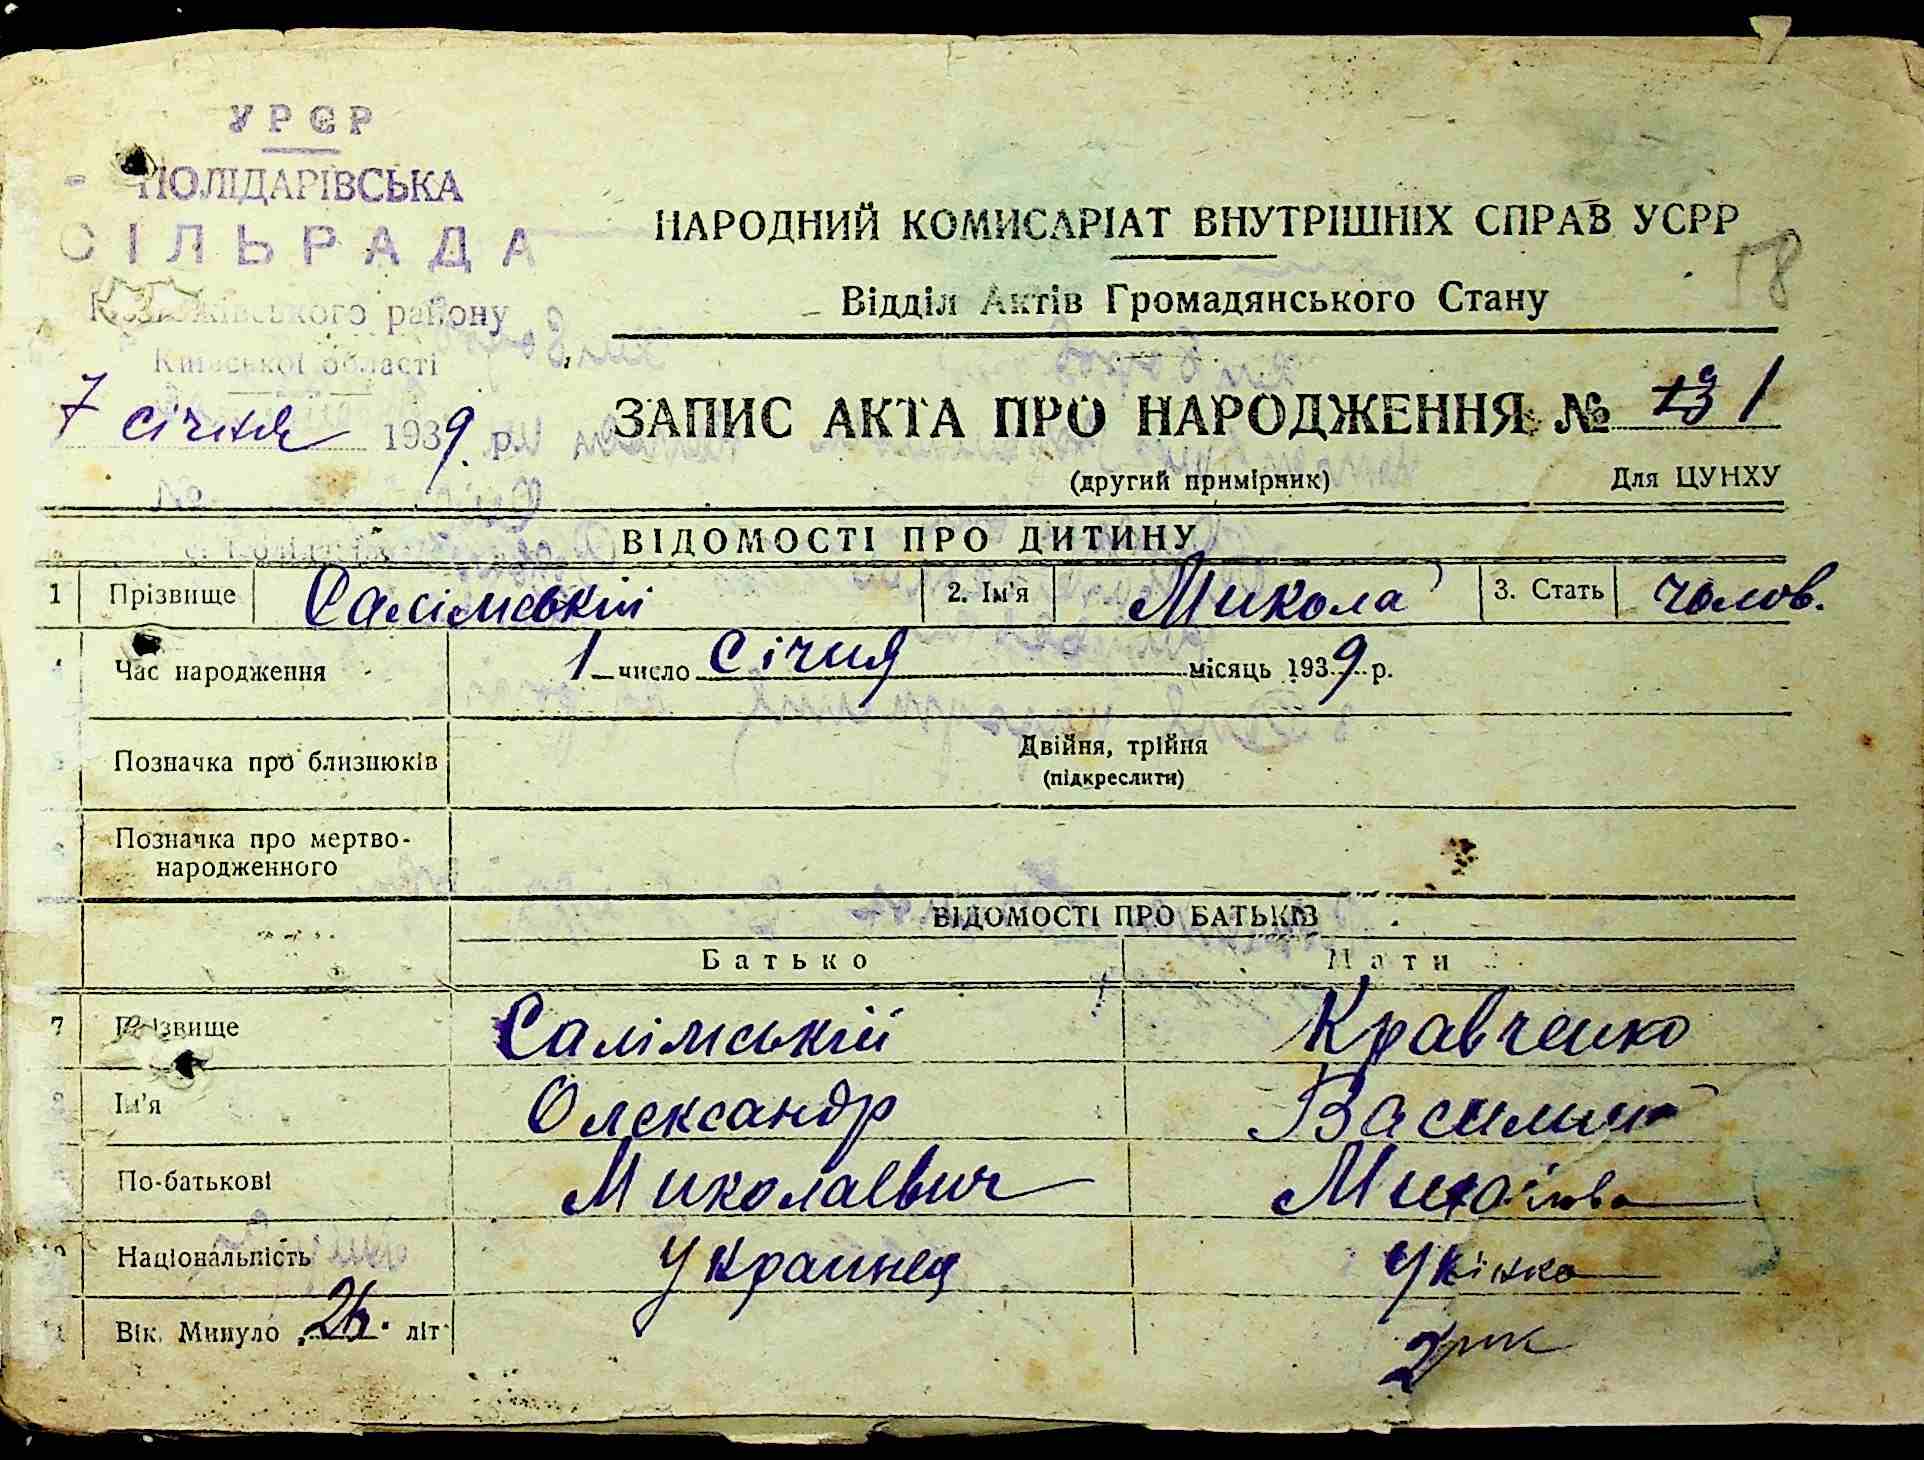 УРСР
ПОЛІДАРІВСЬКА
СІЛЬРАДА
району
Київської області
НАРОДНИЙ КОМИСАРІАТ ВНУТРІШНІХ СПРАВ УСРР
58
Відділ Актів Громадянського Стану
7 січня 1939 р.
ЗАПИС АКТА ПРО НАРОДЖЕННЯ № 1
(другий примірник) Для ЦУНХУ
ВІДОМОСТІ ПРО ДИТИНУ
1 Прізвище Салімській 2. Ім'я Микола 3. Стать чолов.
Час народження 1 число Січня місяць 1939 р.
Позначка про близнюків Двійня, трійня
(підкреслити)
Позначка про мертво-
народженного
ВІДОМОСТІ ПРО БАТЬКІВ
Батько Мати
7 Прізвище Салімській Кравченко
Ім'я Олександр
По-батькові Миколаевич
Національність Украинец
Вік. Минуло 26. літ